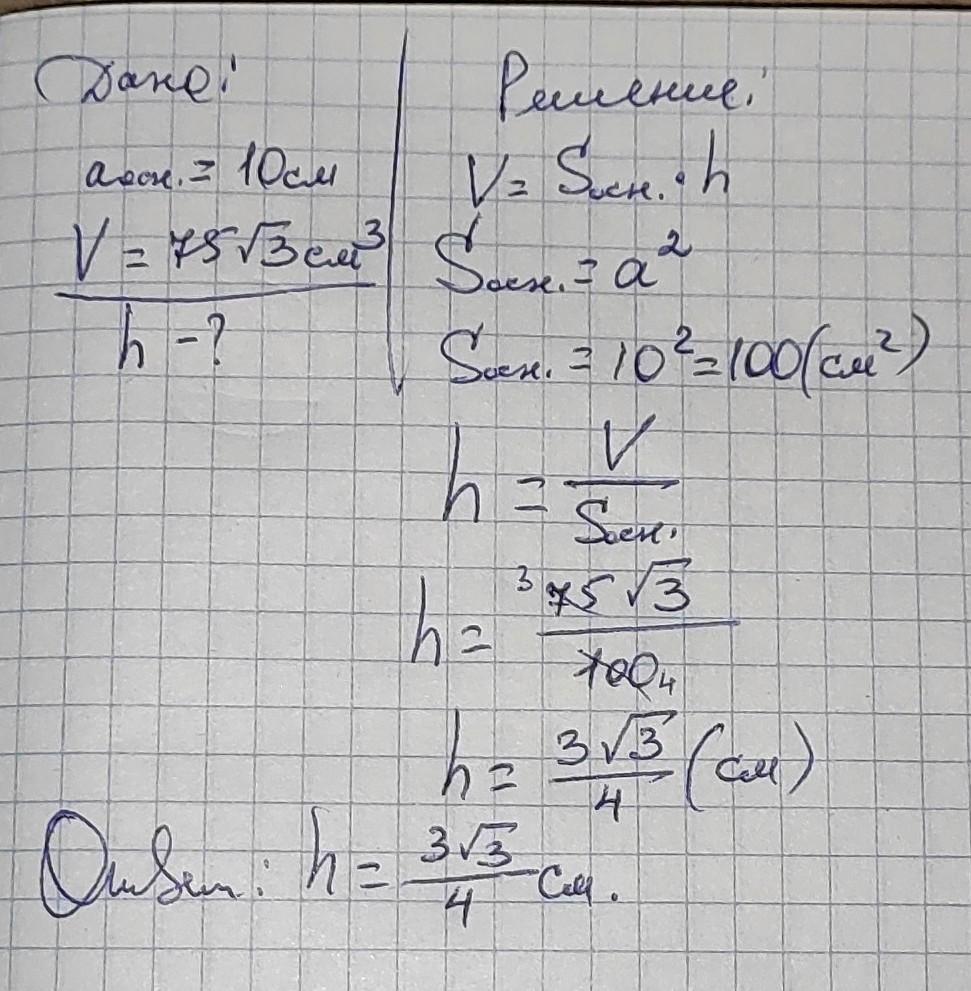 Дано:
aосн. = 10см
V = 75√3 см³
h - ?
Решение:
V = Sосн. · h
Sосн. = a²
Sосн. = 10² = 100 (см²)
h = V / Sосн.
h = ³ 75√3 / 100 ₄
h = 3√3 / 4 (см)
Ответ: h = 3√3 / 4 см.